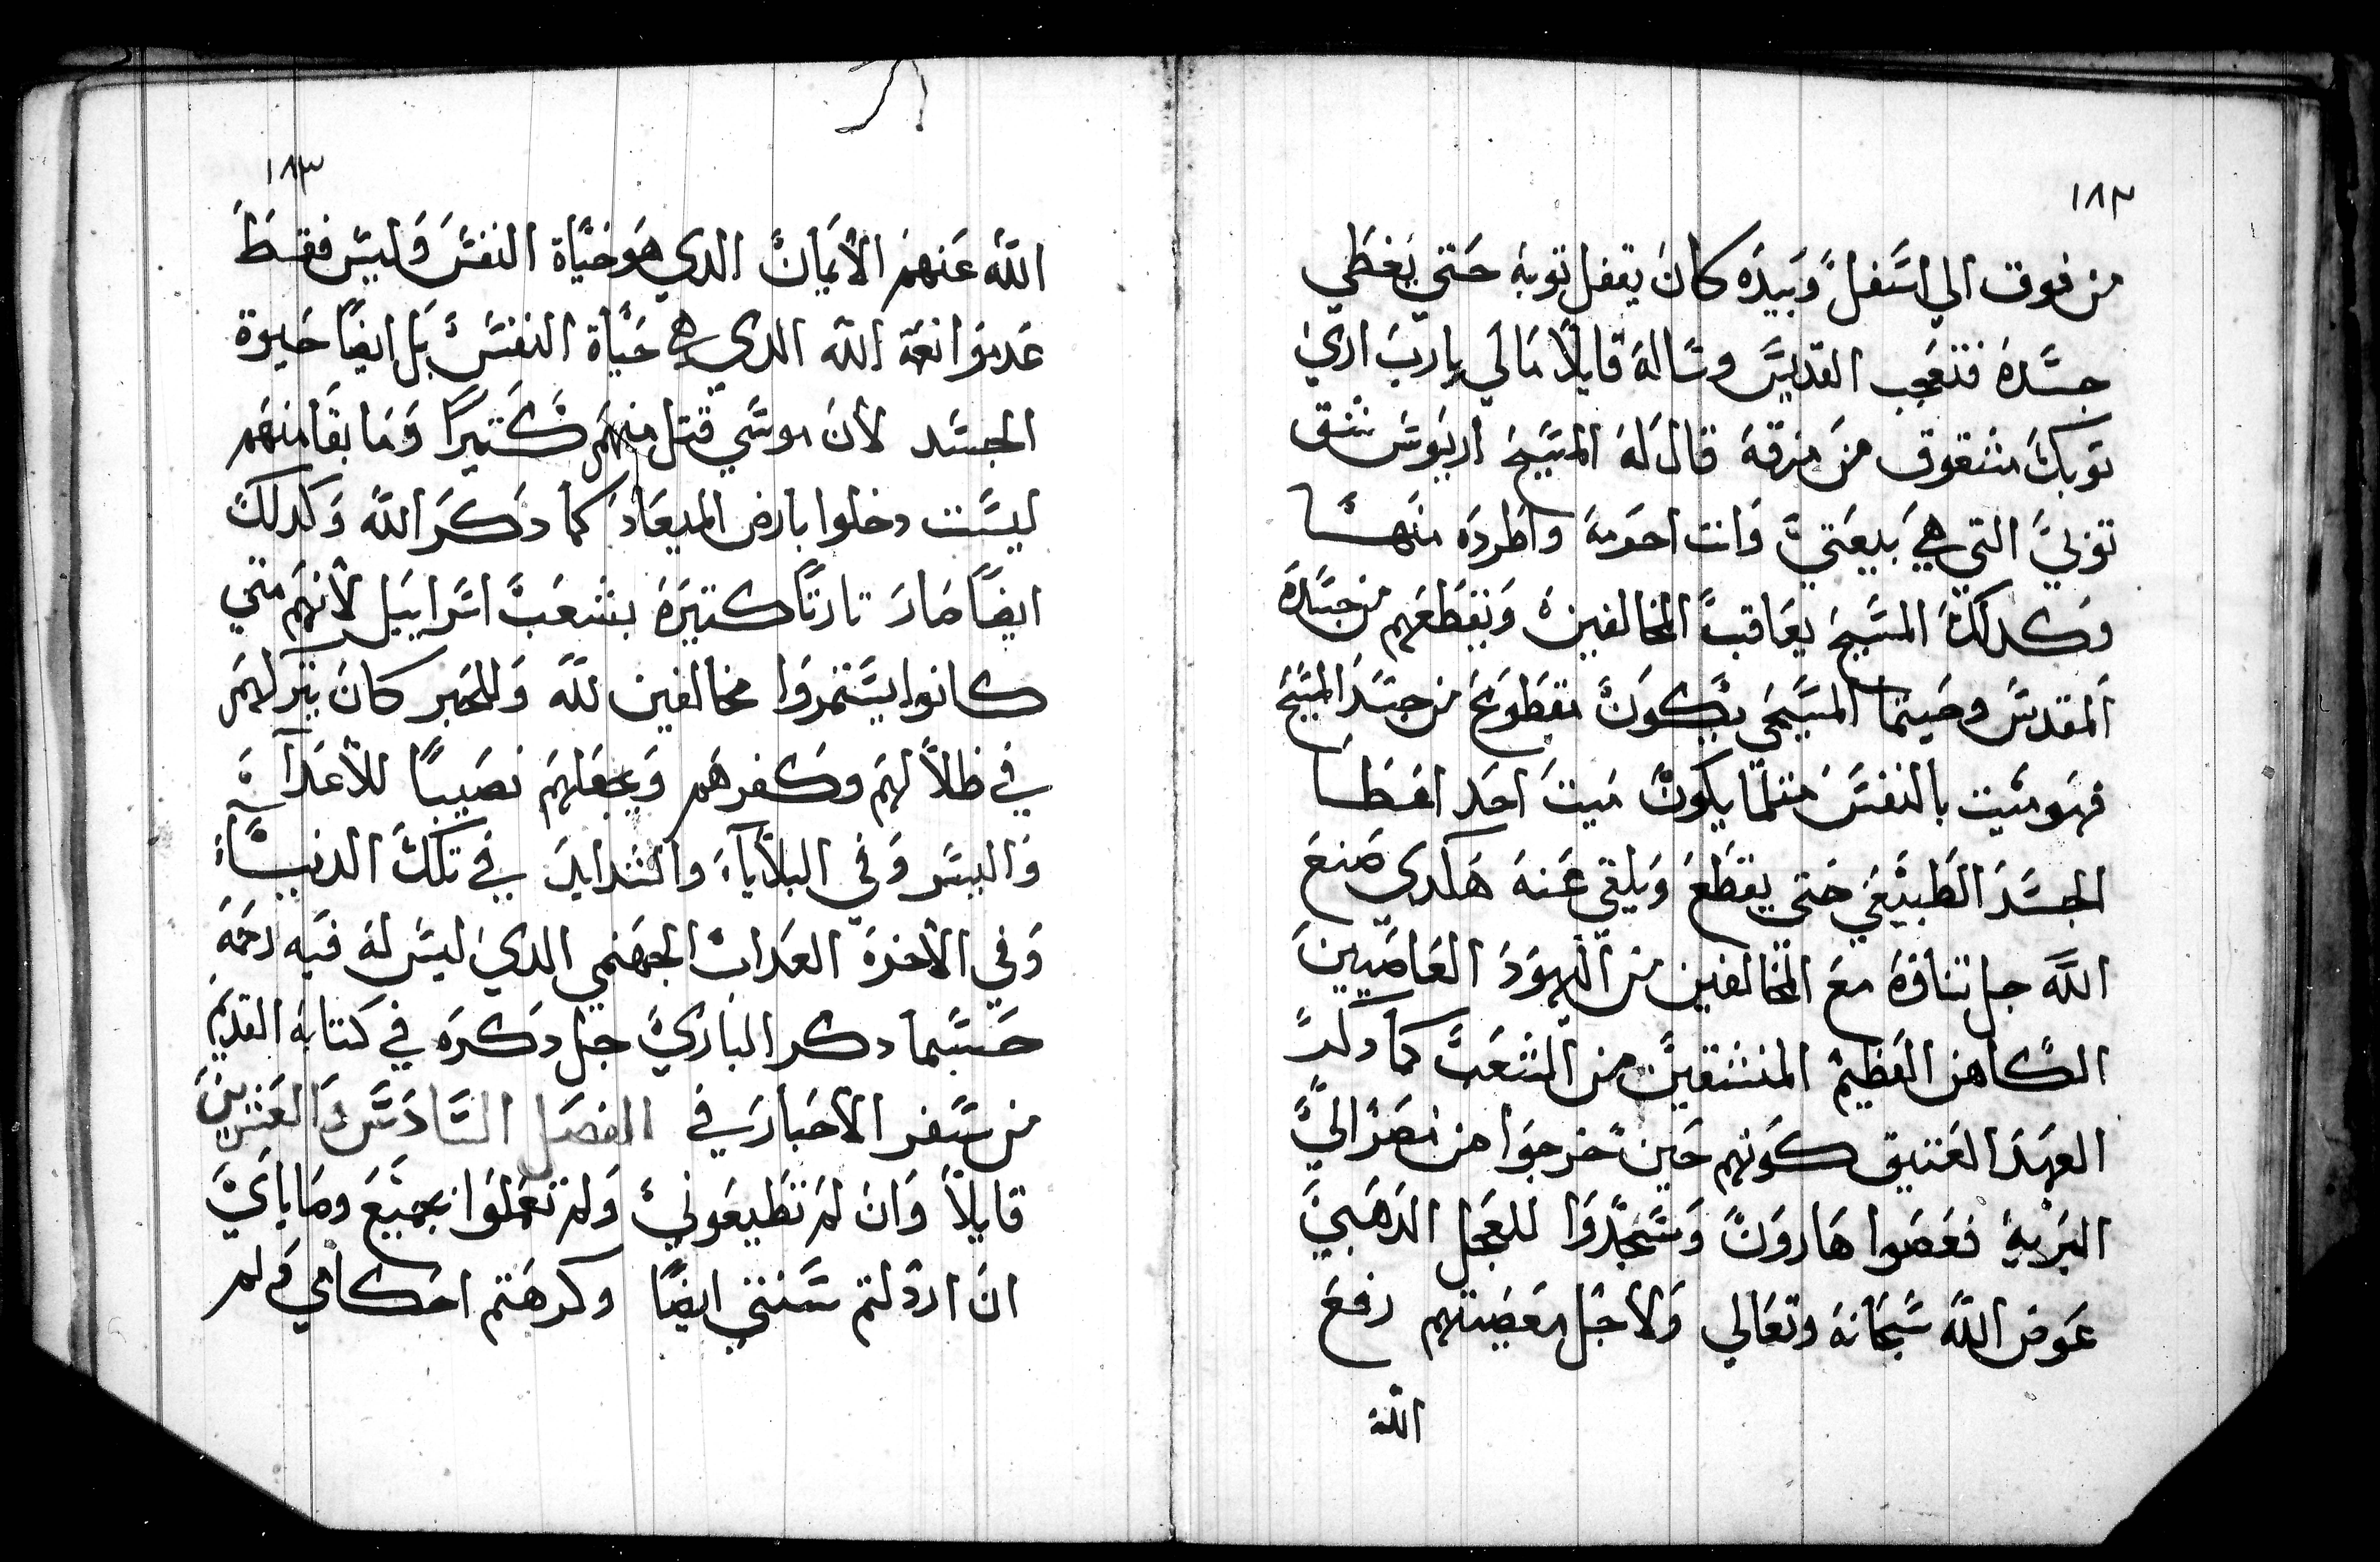 ١٨٢
من فوق الي اسفل وبيده كان يقفل توبه حتي يغطي
جسده فتعجب القديس وساله قايلاً مالي يارب اري
توبك مشقوق من مزقه قال له المسيح اريوس شق
توبي التي هي بيعتي وانت احرمه واطرده منها
وكدلك المسيح يعاقب المخالفين ويقطعهم من جسده
المقدس وحينما المسيحي يكون مقطوع من جسد المسيح
فهو ميت بالنفس متلما يكون ميت احد اعضا
الجسد الطبيعي حتي يقطع ويلقي عنه هكدي صنع
الله جل تناوه مع المخالفين من اليهود العاصيين
الكاهن العظيم المنشقين من الشعب كما دكر
العهد العتيق كونهم حين خرجوا من مصر الي
البريه فعصوا هارون وسجدوا للعجل الدهبي
عوض الله سبحانه وتعالي ولاجل معصيتهم رفع
الله
١٨٣
الله عنهم الايمان الدي هو حياة النفس وليس فقط
عدموا نعمة الله الدي هي حياة النفس بل ايضاً حيوة
الجسد لان موسي قتل منهم كتيراً وما بقا منهم
ليست دخلوا بارض الميعاد كما دكر الله وكدلك
ايضاً صار تارتاً كتيره بشعب اسراييل لانهم متي
كانوا يستمروا مخالفين لله وللحبر كان يتركهم
في ظلالهم وكفرهم ويجعلهم نصيباً للأعدآ
والبيس وفي البلايآء والشدايد في تلك الدنيآ
وفي الاخرة العداب الجهنمي الدي ليس له فيه رحمه
حسبما دكر الباري جل دكره في كتابه القديم
من سفر الاحبار في الفصل السادس والعشرين
قايلاً وان لم تطيعوني ولم تعملوا بجميع وصاياي
ان اردلتم سنتي ايضاً وكرهتم احكامي ولم